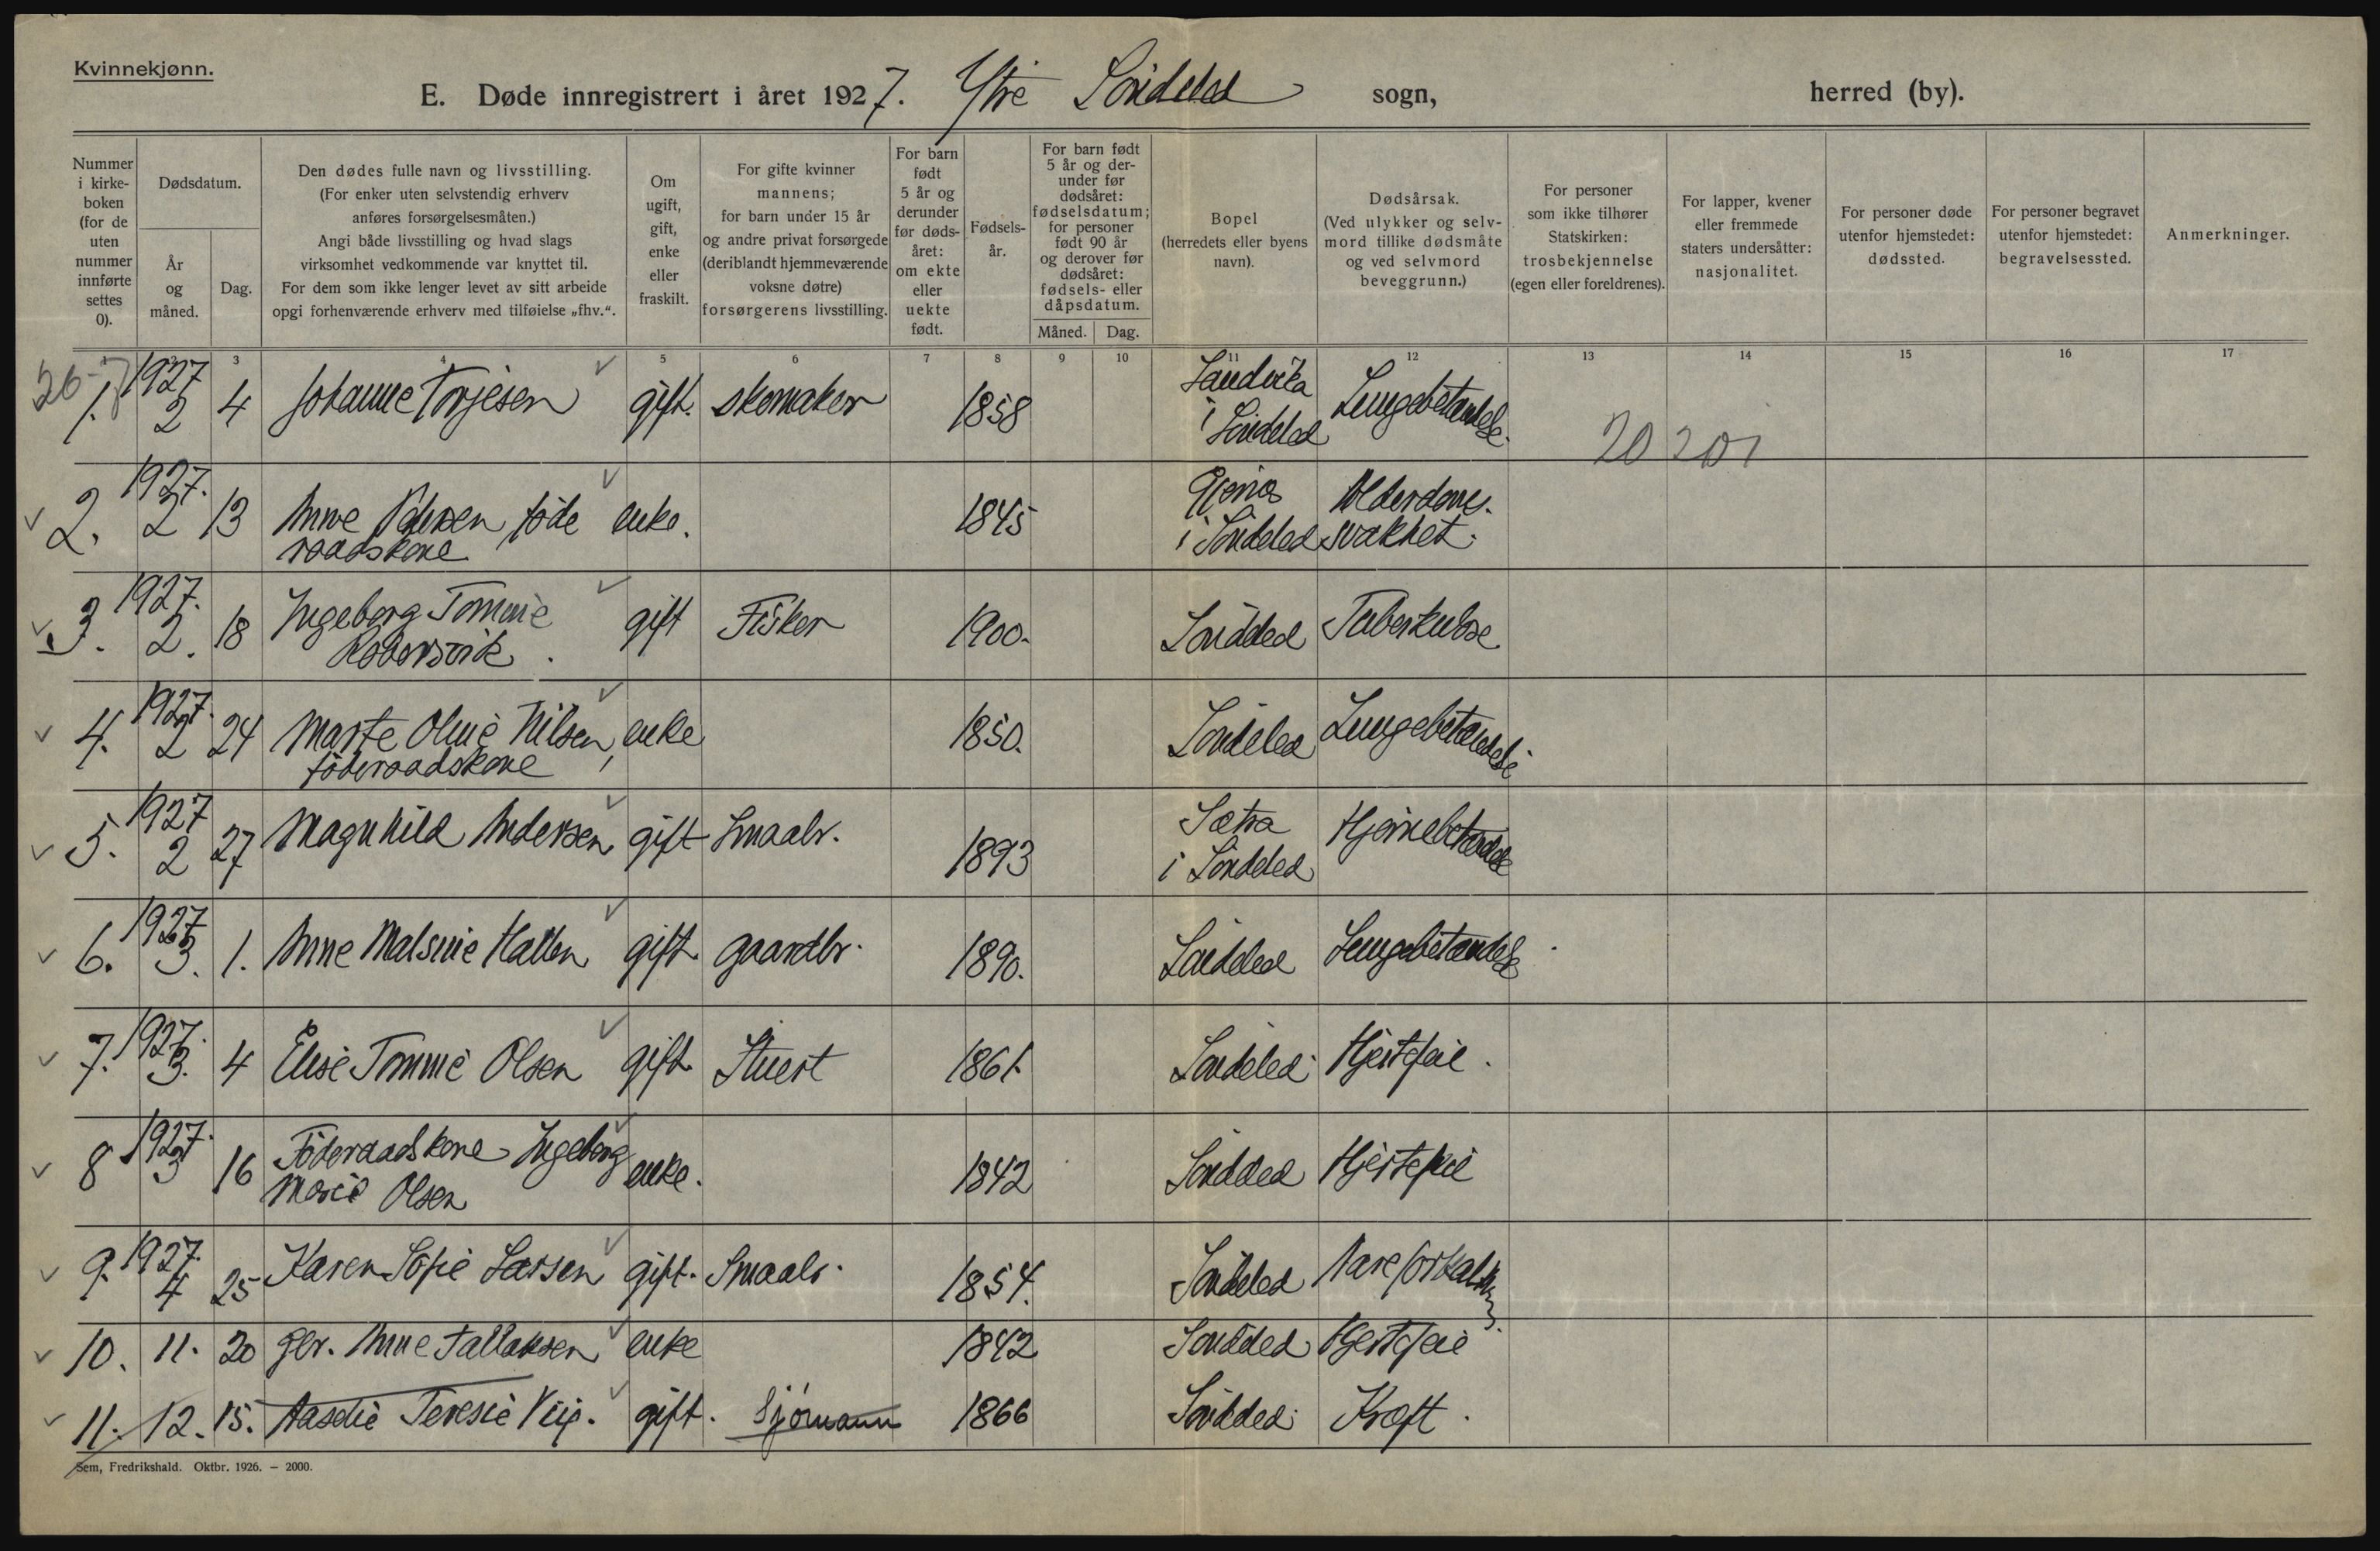 Kvinnekjønn.
E. Døde innregistrert i året 1927. Ytre Söndeled sogn, herred (by).
Nummer i kirke-boken (for de uten nummer innførte settes 0).
Dødsdatum.
År og måned.
Dag.
Den dødes fulle navn og livsstilling.
(For enker uten selvstendig erhverv
anføres forsørgelsesmåten.)
Angi både livsstilling og hvad slags
virksomhet vedkommende var knyttet til.
For dem som ikke lenger levet av sitt arbeide
opgi forhenværende erhverv med tilføielse „fhv.“.
Om ugift, gift, enke eller fraskilt.
For gifte kvinner
mannens;
for barn under 15 år
og andre privat forsørgede
(deriblandt hjemmeværende
voksne døtre)
forsørgerens livsstilling.
For barn født 5 år og derunder før døds-året: om ekte eller uekte født.
Fødsels-år.
For barn født 5 år og der-under før dødsåret: fødselsdatum; for personer født 90 år og derover før dødsåret: fødsels- eller dåpsdatum.
Måned. Dag.
Bopel
(herredets eller byens
navn).
Dødsårsak.
(Ved ulykker og selv-
mord tillike dødsmåte
og ved selvmord
beveggrunn.)
For personer
som ikke tilhører
Statskirken:
trosbekjennelse
(egen eller foreldrenes).
For lapper, kvener
eller fremmede
staters undersåtter:
nasjonalitet.
For personer døde
utenfor hjemstedet:
dødssted.
For personer begravet
utenfor hjemstedet:
begravelsessted.
Anmerkninger.
1 2 3 4 5 6 7 8 9 10 11 12 13 14 15 16 17
26-7
1. 1927 2 4 Johanne Torjesen gift. skomaker 1858 Sandvika i Söndeled Lungebetændelse.
20 201
2. 1927. 2 13 Anne Pedersen föde enke. 1845 i Söndeled Alderdoms-
raadskone svakhet.
3. 1927. 2. 18 Ingeborg Tomine gift Fisker 1900. Söndeled Tuberkulose
4. 1927. 2 24 Marte Oline Nilsen, enke 1850. Söndeled Lungebetændelse
föderaadskone
5. 1927 2 27 Magnhild Andersen gift Smaabr. 1893 Sætra i Söndeled Hjernebetændelse
6. 1927 3. 1. Anne Malvine Hallen gift gaardbr. 1890. Söndeled Lungebetændelse
7. 1927. 3. 4 Elise Tomine Olsen gift Stuert 1861. Söndeled Hjertefeil.
8 1927. 3 16 Föderaadskone Ingeborg enke. 1842 Söndeled Hjertefeil
Marie Olsen
9. 1927. 4 25 Karen Sofie Larsen gift. Smaabr. 1854. Söndeled Aareforkalkning.
10. 11. 20 gbr. Anne Tallaksen enke 1842 Söndeled Hjertefeil
11. 12. 15. Teresie gift. Sjömann 1866 Söndeled Kræft.
Sem, Fredrikshald. Oktbr. 1926. — 2000.